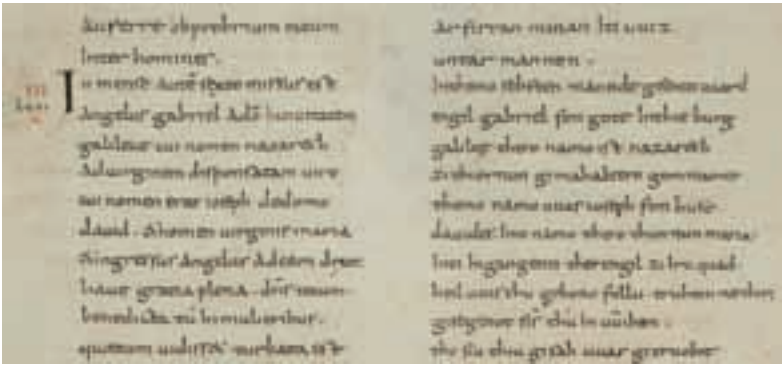 auferre obprobrium meum
inter homines.
In mense aut sexto missus est
angelus gabriel a dō in ciuitatem
galileae cui nomen nazareth
ad uirginem disponsatam uiro
cui nomen erat ioseph de domo
dauid. & nomen uirginis maria
& ingressus angelus ad eam dixit
haue gratia plena. dns tecum
benedicta tu in mulieribus.
quae cum uidiss& turbata est
arfirran minan
untar mannon.
sehsten manude uuard
engil gabriel fon gote In burg
galilee thero namo ist nazareth
zi thiornun gommanne
themo namo uuas ioseph fon huse
dauides Inti namo thero thiornun maria
Inti ther engil zi Iru quad
heil uuis thu gebono follu truhtin
sis thu In uuibun.
tho siu thiu gisah uuas